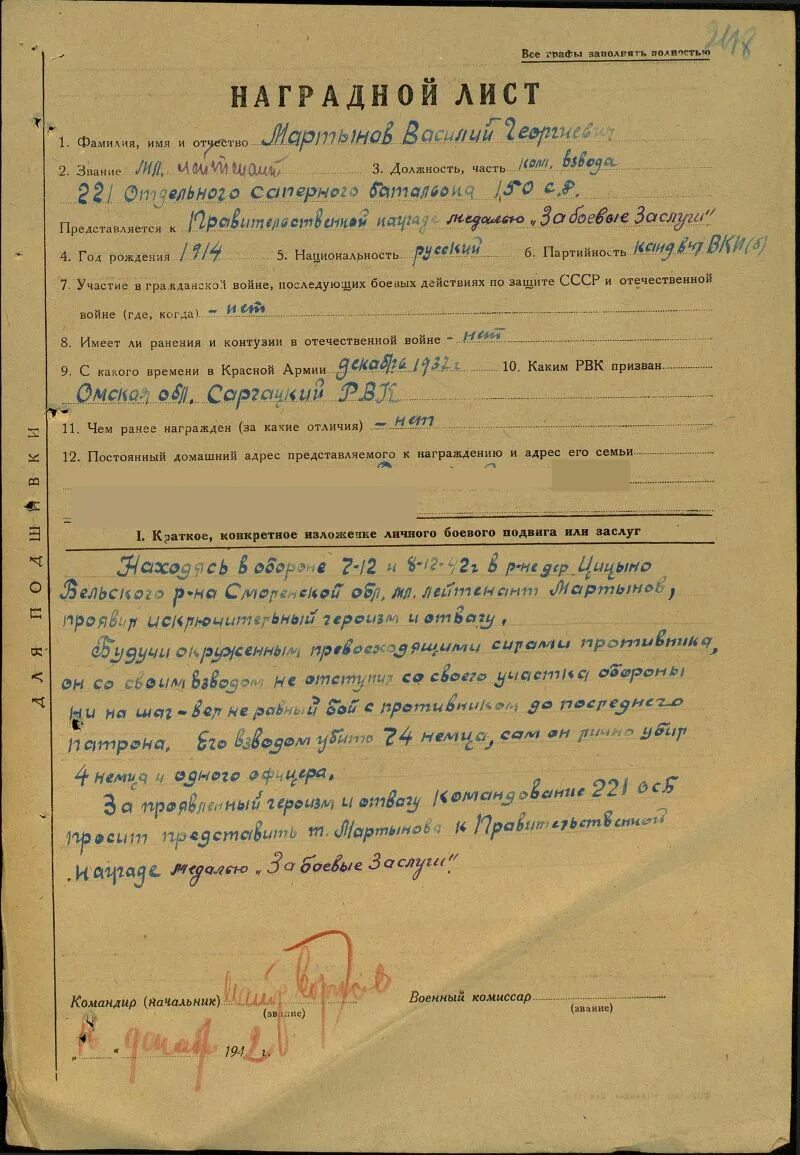 248
Все графы заполнять полностью
НАГРАДНОЙ ЛИСТ
1. Фамилия, имя и отчество Мартынов Василий Георгиевич
2. Звание мл. лейтенант 3. Должность, часть ком. взвода
221 Отдельного саперного батальона 150 с.д.
Представляется к Правительственной награде медалью „За боевые Заслуги"
4. Год рождения 1914 5. Национальность русский 6. Партийность канд. в чл ВКП(б)
7. Участие в гражданской войне, последующих боевых действиях по защите СССР и отечественной
войне (где, когда) - нет
8. Имеет ли ранения и контузии в отечественной войне - нет
9. С какого времени в Красной Армии декабрь 1937г 10. Каким РВК призван
Омская обл. Саргацкий РВК
11. Чем ранее награжден (за какие отличия) - нет
12. Постоянный домашний адрес представляемого к награждению и адрес его семьи
I. Краткое, конкретное изложение личного боевого подвига или заслуг
Находясь в обороне 7-12 и 8-12-42г в р-не дер Цицыно
Бельского р-на Смоленской обл, мл. лейтенант Мартынов,
проявил исключительный героизм и отвагу.
Будучи окруженным превосходящими силами противника,
он со своим взводом не отступил со своего участка обороны
ни на шаг - вел неравный бой с противником до последнего
патрона. Его взводом убито 74 немца, сам он лично убил
4 немца и одного офицера.
За проявленный героизм и отвагу Командование 221 ОСБ
просит представить т. Мартынова к Правительственной
награде медалью „За боевые Заслуги"
Командир (начальник) Военный комиссар
(звание) (звание)
„ " декабр 1942г.
ДЛЯ ПОДШИВКИ